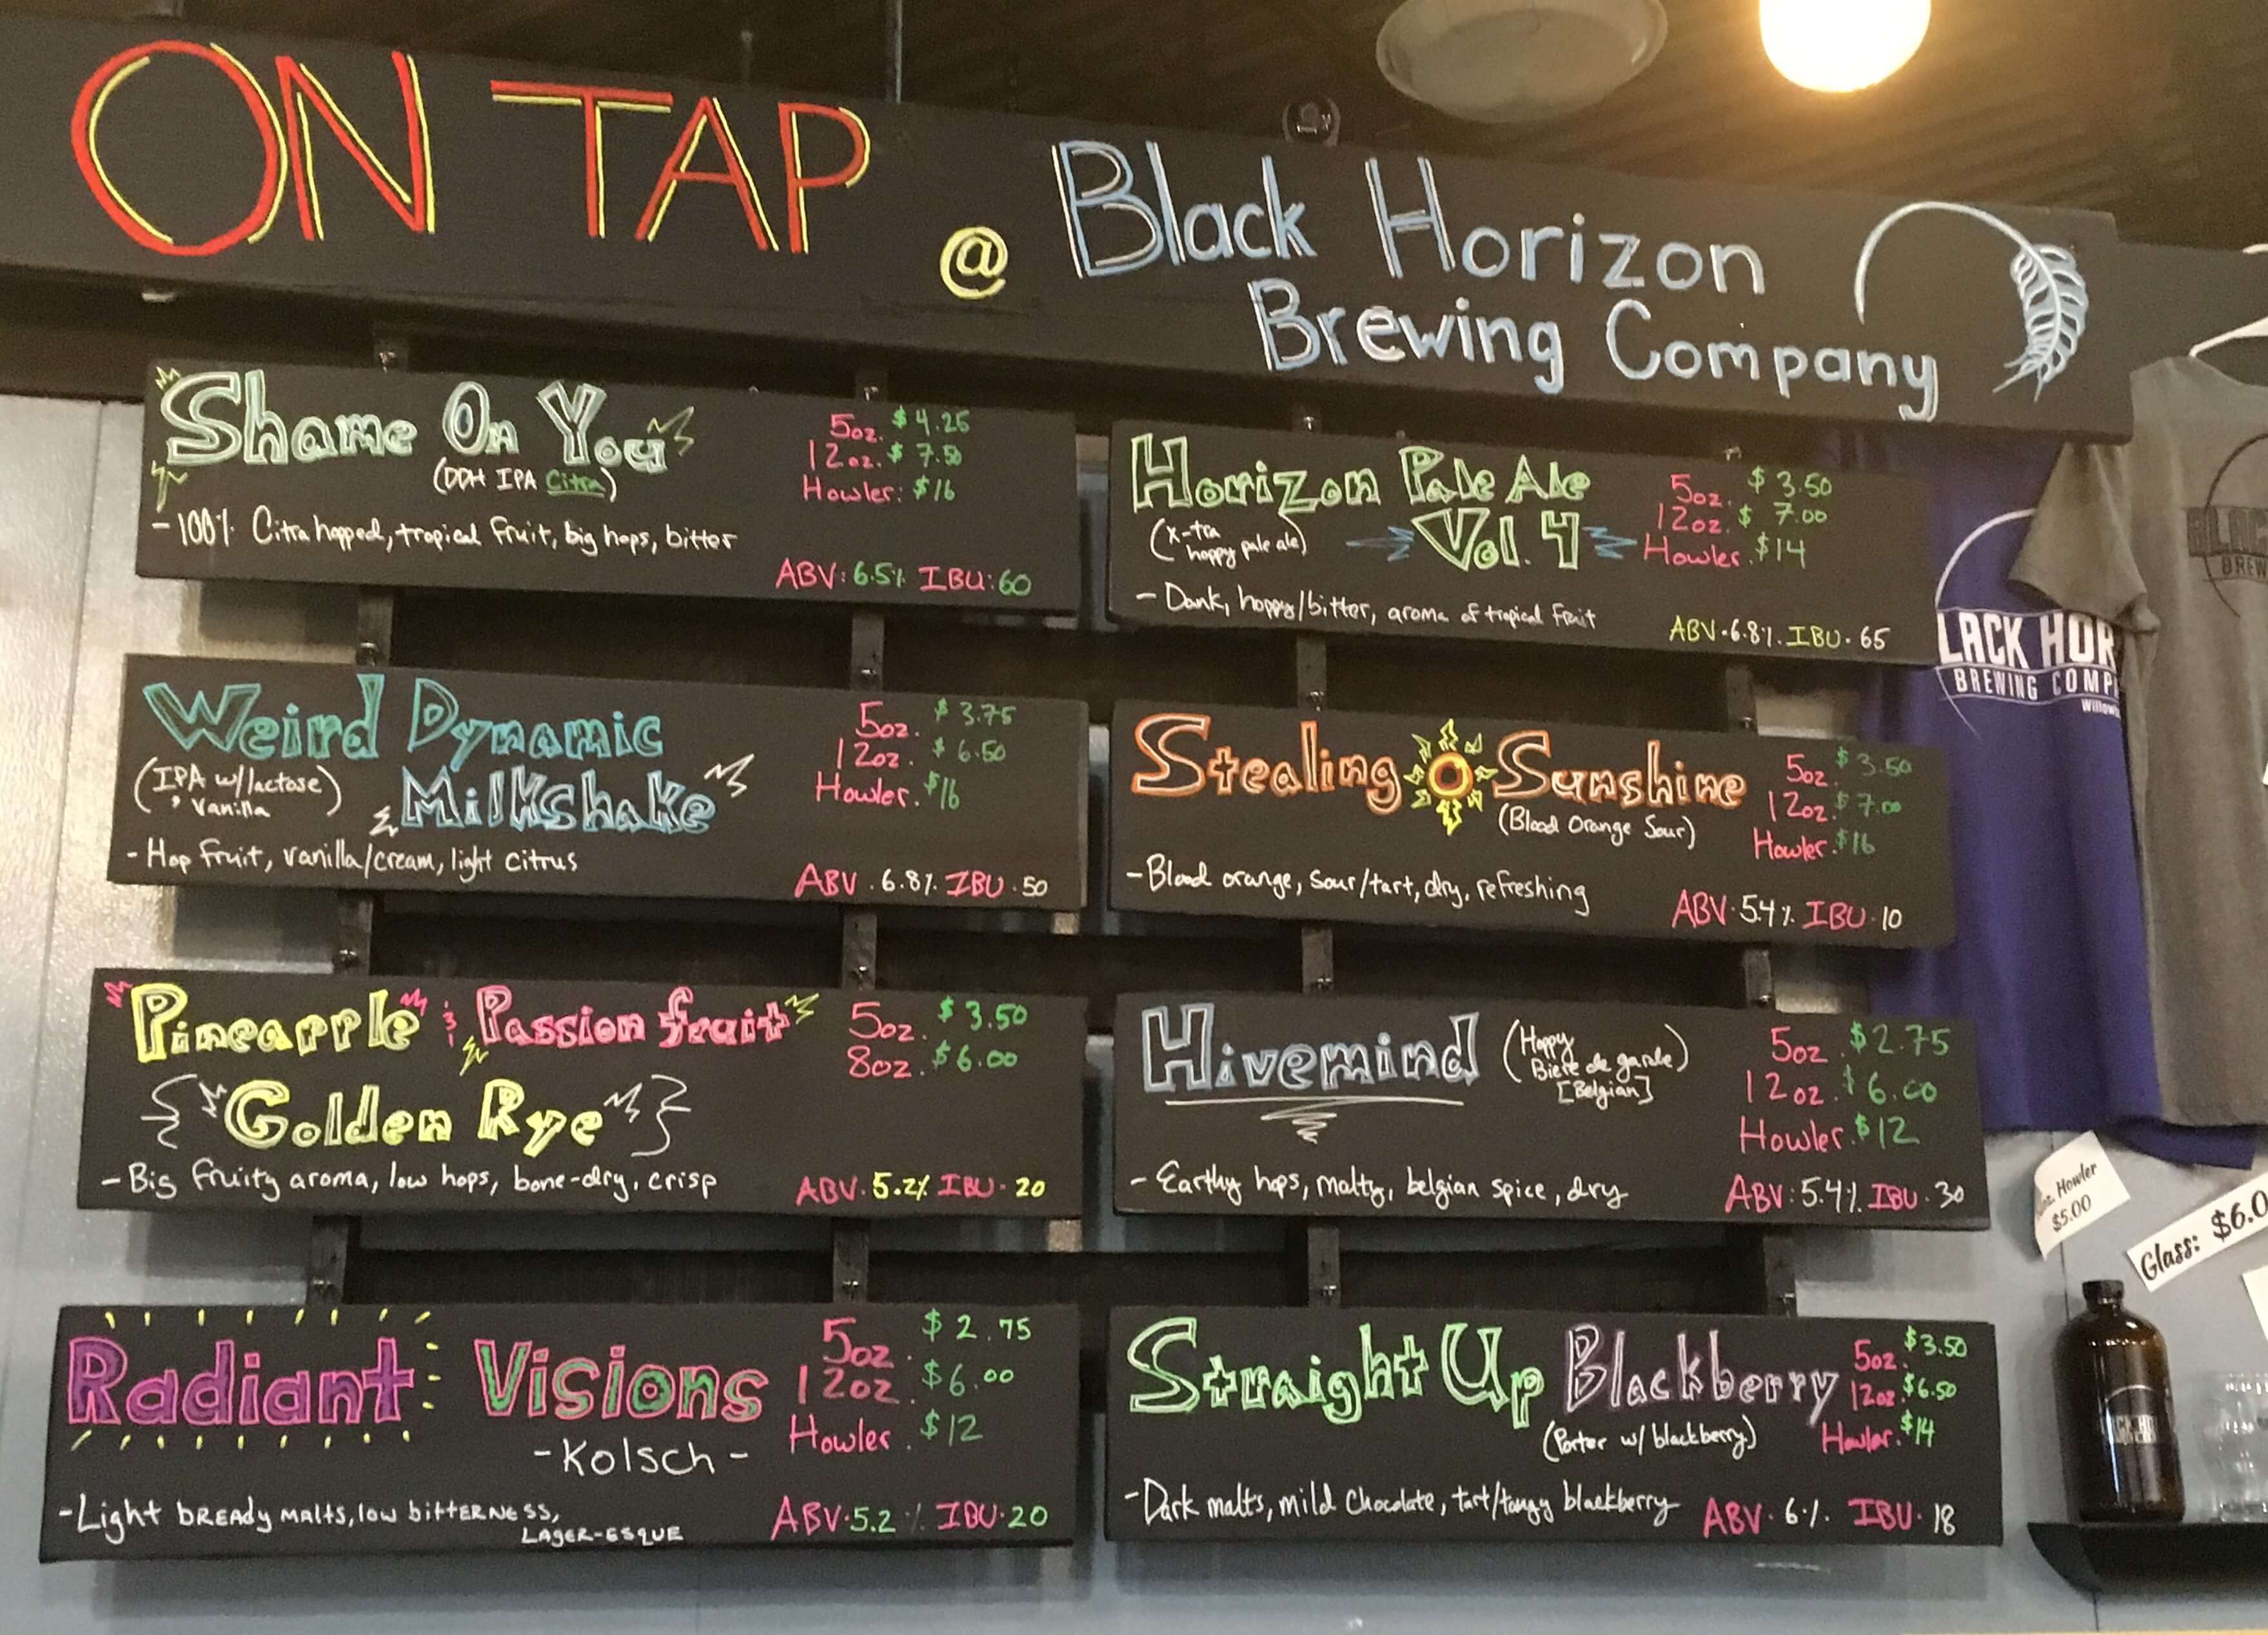 ON TAP @ Black Horizon
Brewing Company
Shame On You
(DDH IPA Citra)
5oz. $4.25
12oz. $7.50
Howler: $16
- 100% Citra hopped, tropical fruit, big hops, bitter
ABV: 6.5% IBU: 60
Weird Dynamic
Milkshake
(IPA w/lactose
, vanilla)
5oz. $3.75
12oz. $6.50
Howler. $16
- Hop fruit, vanilla/cream, light citrus
ABV. 6.8% IBU. 50
Pineapple & Passion fruit
{Golden Rye}
5oz. $3.50
8oz. $6.00
- Big fruity aroma, low hops, bone-dry, crisp
ABV. 5.2% IBU. 20
Radiant Visions
-Kolsch-
5oz. $2.75
12oz. $6.00
Howler. $12
-Light bready malts, low bitterness,
LAGER-ESQUE
ABV. 5.2% IBU. 20
Horizon Pale Ale
Vol. 4
(x-tra
hoppy pale ale)
5oz. $3.50
12oz. $7.00
Howler. $14
- Dank, hoppy/bitter, aroma of tropical fruit
ABV. 6.8% IBU. 65
Stealing Sunshine
(Blood Orange Sour)
5oz. $3.50
12oz. $7.00
Howler. $16
-Blood orange, sour/tart, dry, refreshing
ABV. 5.4% IBU. 10
Hivemind
(Hoppy
Biere de garde)
[Belgian]
5oz. $2.75
12oz. $6.00
Howler. $12
- Earthy hops, malty, belgian spice, dry
ABV: 5.4% IBU. 30
Straight Up Blackberry
(Porter w/ blackberry)
5oz. $3.50
12oz. $6.50
Howler. $14
-Dark malts, mild chocolate, tart/tangy blackberry
ABV. 6% IBU. 18
LACK HOR
BREWING COMP
Willow
BREW
Howler
$5.00
Glass: $6.0